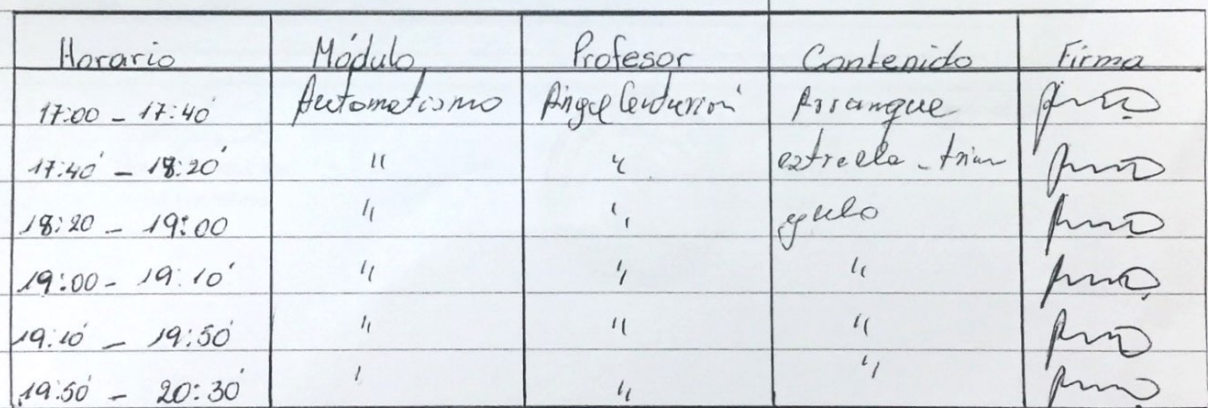 Horario Módulo Profesor Contenido Firma
17:00 - 17:40 Automatismo Angel Centurión Arranque
17:40 - 18:20 " " estrella - trian
18:20 - 19:00 " " gulo
19:00 - 19:10 " " "
19:10 - 19:50 " " "
19:50 - 20:30 ' " "